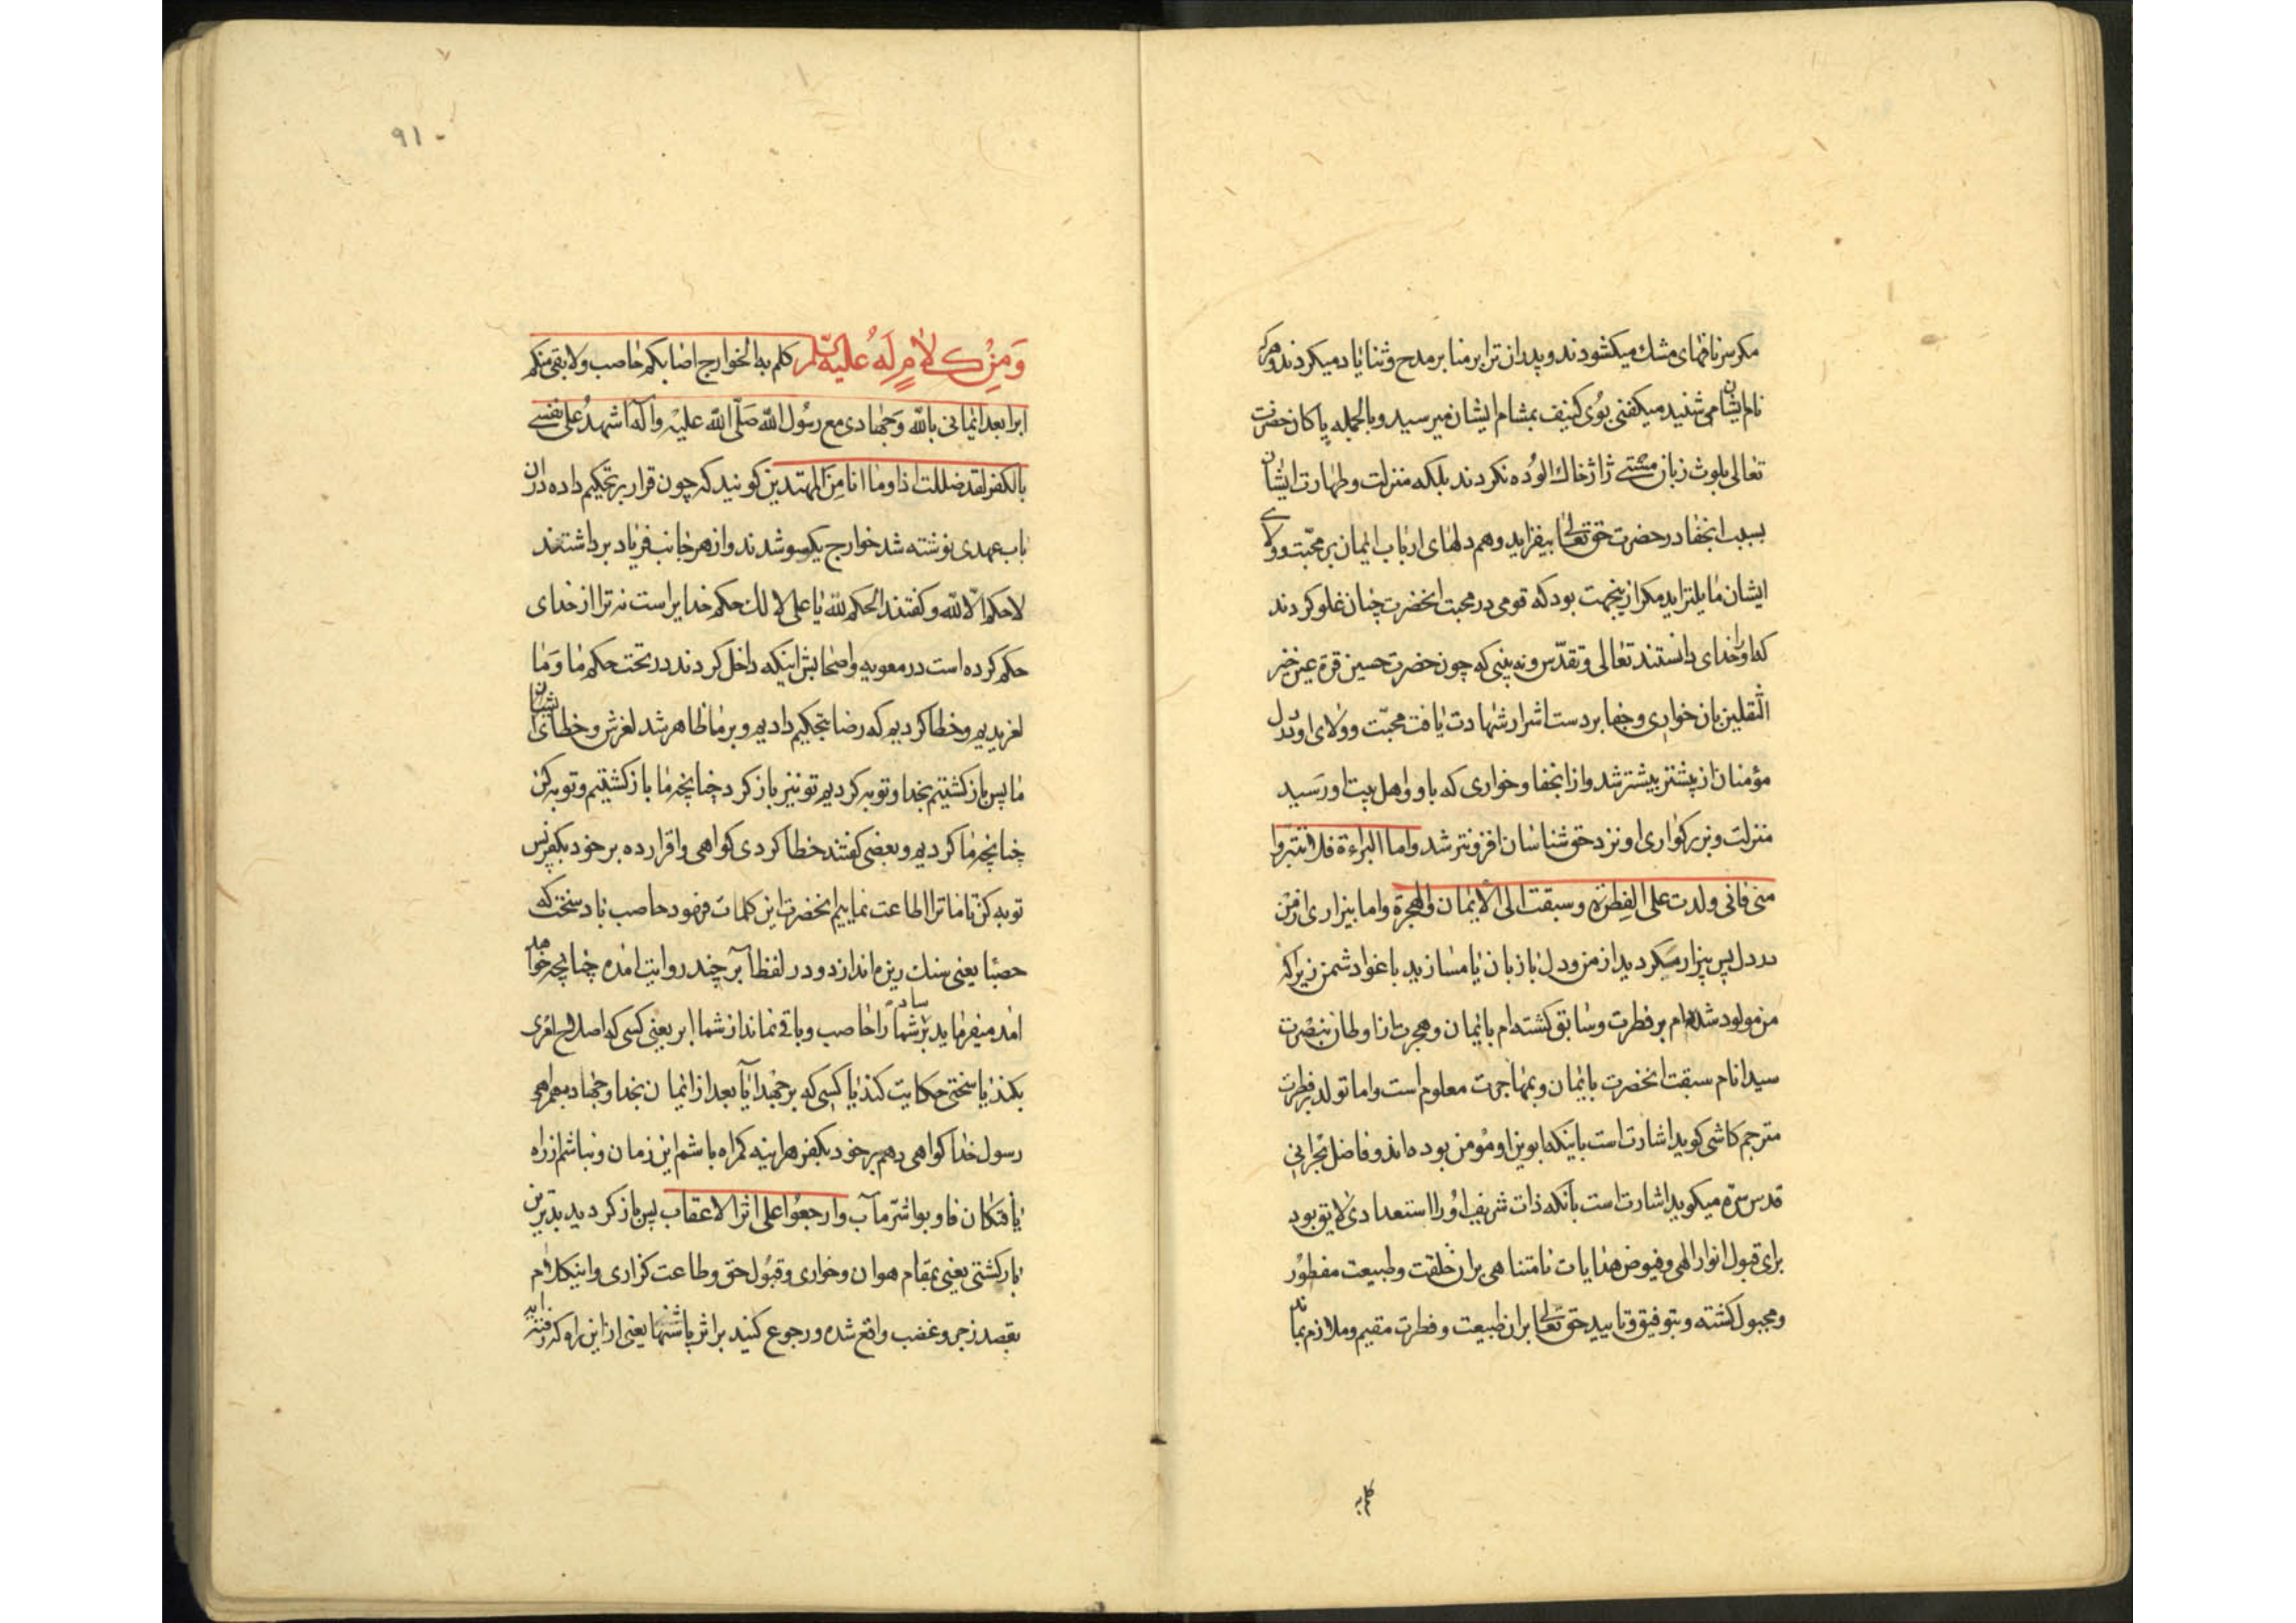 مکر سر نافهای مشك میکشودند و پدران ترا بر منابر مدح و ثنایا د میکردند و هرکه
نام ایشان می شنید میکفتی بوی کنیف بمشام ایشان میرسید و بالجمله پاکان حضرت
تعالی بلوث زبان مشتی ژاژخاك الوده نکردند بلکه منزلت و طهارت ایشان
بسبب انجفا در حضرت حق تعالی بیفزاید و هم دلهای ارباب ایمان بر محبت و ولای
ایشان مایلتر اید مکر ازینجهت بود که قومی در محبت انحضرت چنان غلو کردند
که او را خدای دانستند تعالی و تقدس و نه بینی که چون حضرت حسین قرة عین خیر
الثقلین بان خواری و جفا بر دست اشرار شهادت یافت محبت و ولای او در دل
مؤمنان از پیشتر بیشتر شد و از انجفا و خواری که باو و اهل بیت او رسید
منزلت و بزرکواری او نزد حق شناسان افزونتر شد واما البراءة فلا تتبرّوا
منی فانی ولدت علی الفطرة و سبقت الی الایمان والهجرة واما بیزاری از من
در دل پس بیزار میکردید از من و دل با زبان یا مسازید باغواد شمن زیرا که
من مولود شده ام بر فطرت و سابق کشته ام بایمان و هجرت از اوطان بنصرت
سید انام سبقت انحضرت بایمان و بمهاجرت معلوم است واما تولد بر فطرت
مترجم کاشی کوید اشارت است باینکه ابوین او مؤمن بوده اند و فاضل بحرانی
قدس سره میکوید اشارت است بانکه ذات شریف او را استعدادی لایق بود
برای قبول انوار الهی و فیوض هدایات نامتناهی بران خلقت و طبیعت مفطور
و مجبول کشته و بتوفیق و تایید حق تعالی بران طبیعت و فطرت مقیم و ملازم بماند
٩١
وَمِنْ كَلامٍ لَهُ عَلَيْهِ السَّلام کلم به الخوارج اصابکم حاصب ولا بقی منکم
ابر ابعد ایمانی بالله وجهادی مع رسول الله صلّی الله علیه واله اشهد علی نفسی
بالکفر لقد ضللت اذا وما انا من المهتدین کویند که چون قرار بر تحکیم داده دران
باب عهدی نوشته شد خوارج یکسو شدند و از هر جانب فریاد برداشتند
لا حکم الّا لله و کفتند الحکم لله یا علی لا لك حکم خدایراست نه ترا از خدای
حکم کرده است در معویه و اصحابش اینکه داخل کردند در تحت حکم ما و ما
لغزیدیم و خطا کردیم که رضا بتحکیم دادیم و بر ما ظاهر شد لغزش و خطای ایشان
ما پس باز کشتیم بخدا و توبه کردیم تو نیز باز کرد چنانچه ما باز کشتیم و توبه کن
چنانچه ما کردیم و بعضی کفتند خطا کردی کواهی و اقرار ده بر خود بکفر پس
توبه کن تا ما ترا اطاعت نماییم انحضرت این کلمات فرمود حاصب باد سخت که
حصبا یعنی سنك ریزه اندازد و در لفظ آبر چند روایت امده چنانچه خواهد
امد میفرماید برساد شما را حاصب و باقی نماند از شما ابر یعنی کسی که اصلاح امری
بکند یا سختی حکایت کند یا کسی که برجهد ایا بعد از ایمان بخدا و جهاد بهمراهی
رسول خدا کواهی دهم بر خود بکفر هراینه کمراه باشم این زمان و نباشم از راه
یافتکان فاوبوا شرّ مآب وارجعوا علی اثر الاعقاب پس باز کردید بدترین
بازکشتی یعنی بمقام هوان و خواری و قبول حق و طاعت کزاری و اینکلام
بقصد زجر و غضب واقع شده و رجوع کنید بر اثر پاشنها یعنی از این راه که رفته اید